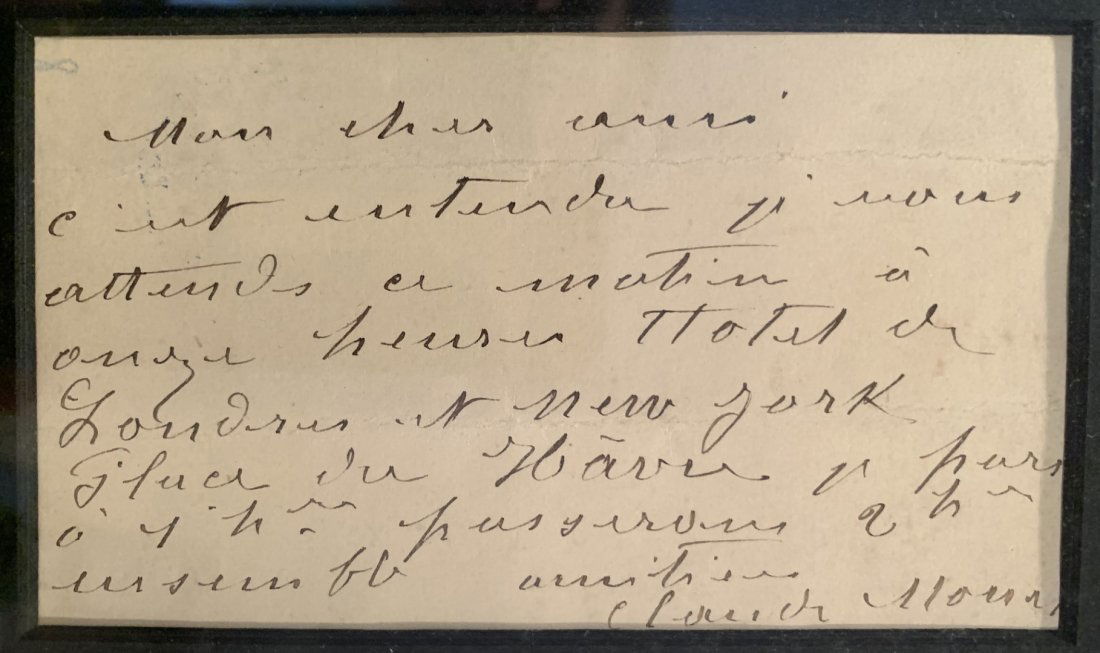 Mon cher ami
c'est entendu je vous
attends ce matin à
onze heures Hotel de
Londres et New York
Place du Hâvre je pars
à 1 h re passerons 2 h re
ensemble amitiés
Claude Monet